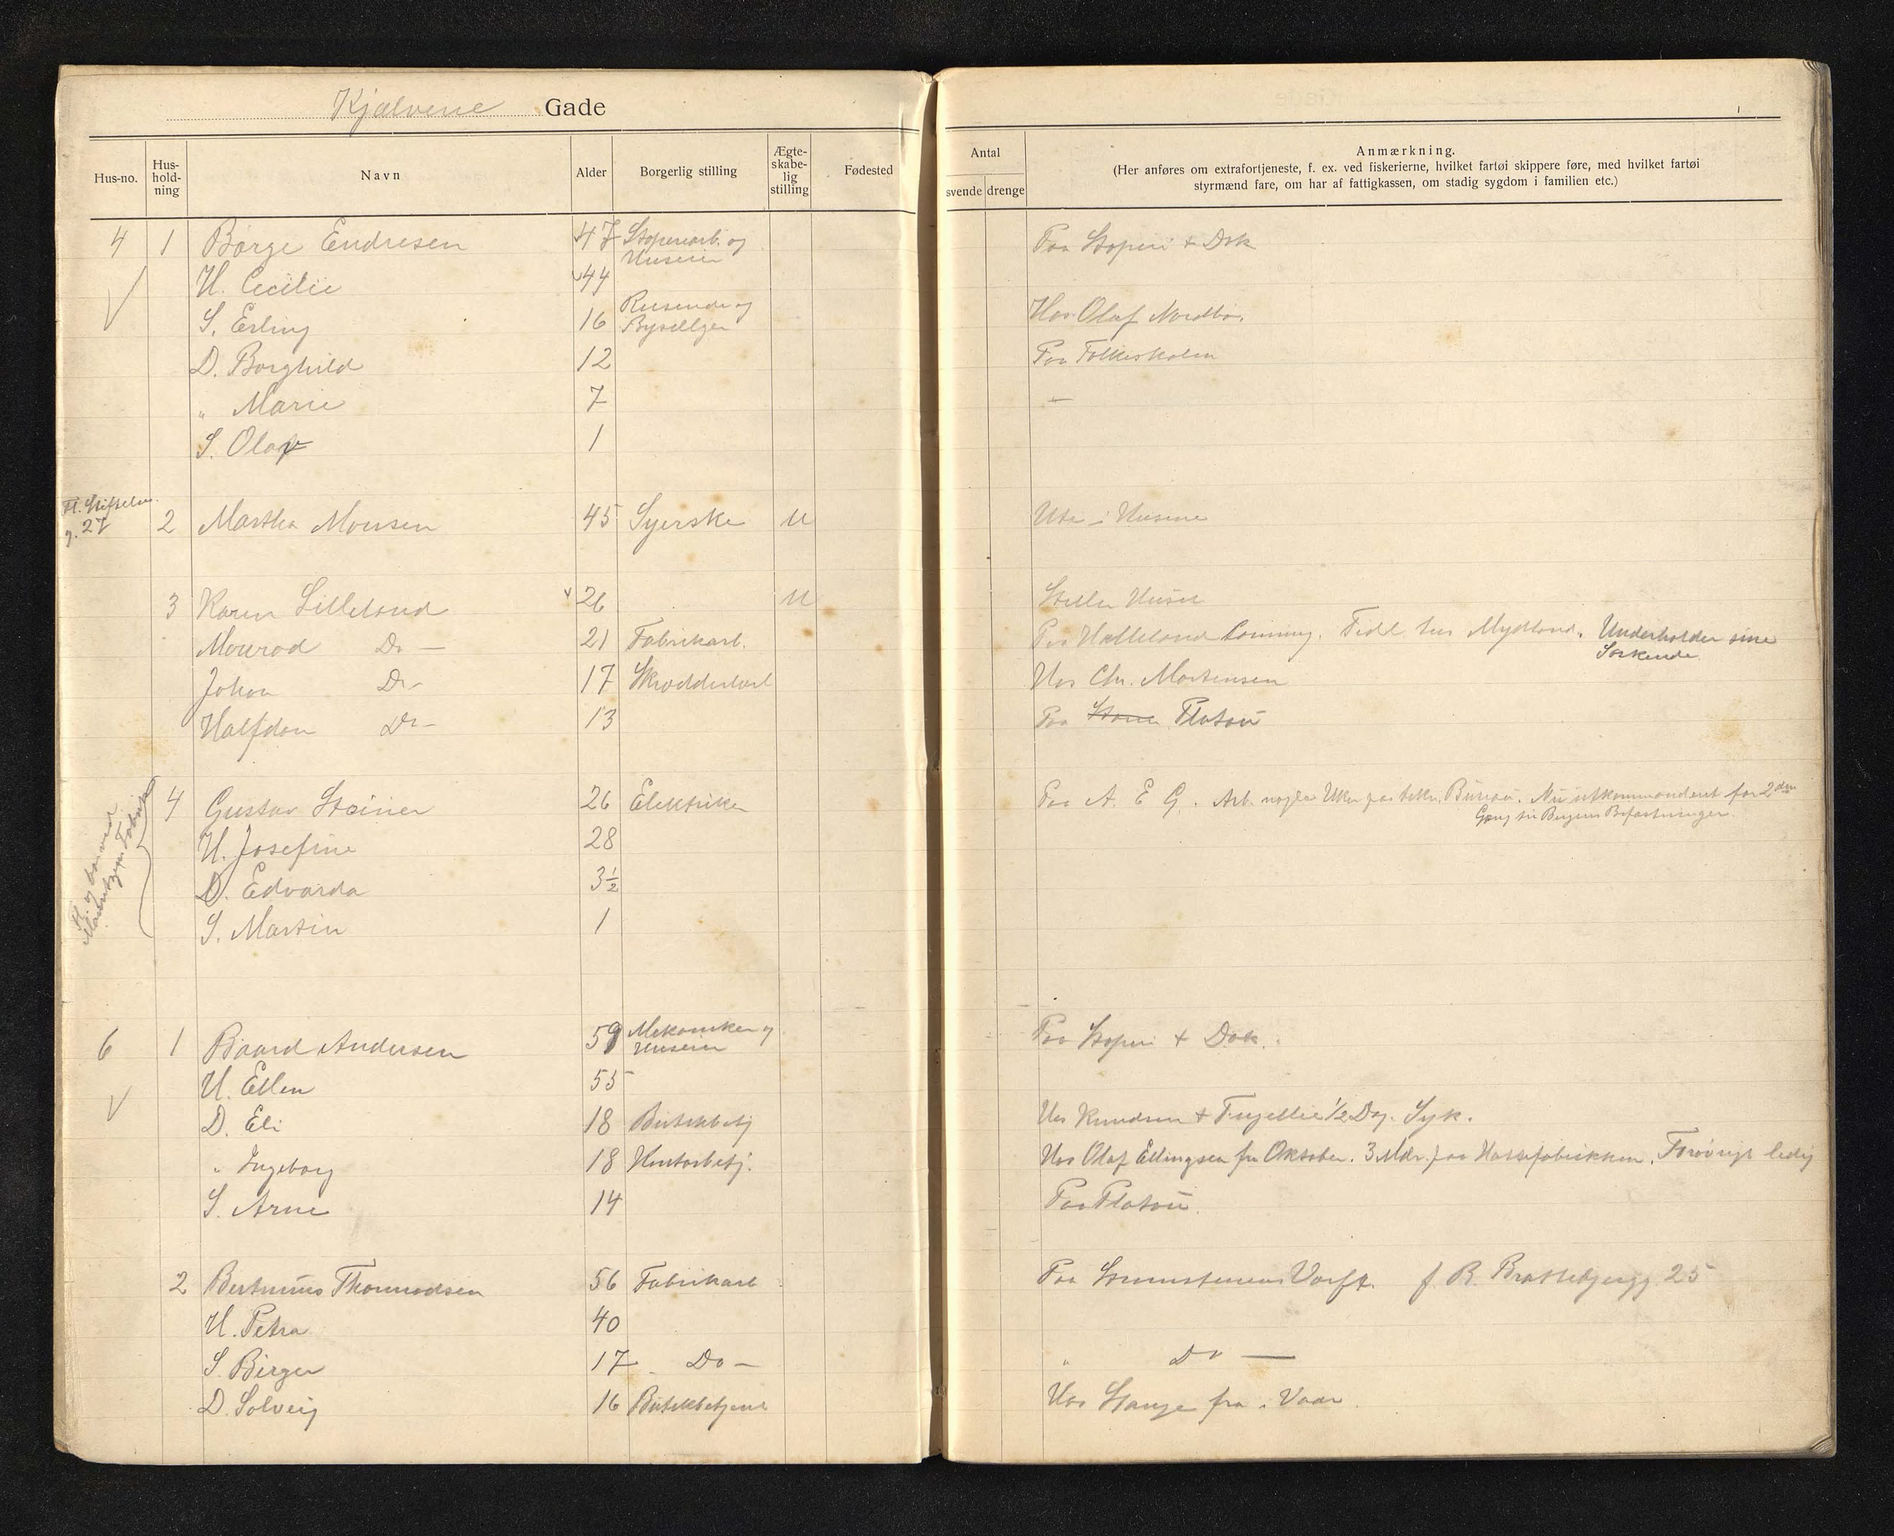 Kjælvene Gade
Hus-no. Hus-hold-ning Navn Alder Borgerlig stilling Ægte-skabe-lig stilling Fødested
Antal
svende drenge
Anmærkning.
(Her anføres om extrafortjeneste, f. ex. ved fiskerierne, hvilket fartøi skippere føre, med hvilket fartøi
styrmænd fare, om har af fattigkassen, om stadig sygdom i familien etc.)
4 1 Børge Endresen 47 Støperiarb. og Huseier Paa Støperi + Dok
H. Cecilie 44
S. Erling 16 Reisende og Hos Olaf Nordbø.
D. Borghild 12 Paa Folkeskolen
" Marie 7 —
S. Olaf 1
Fl. Stiftelse
g. 27
2 Martha Monsen 45 Syerske U Ute i Husene
3 Karen Lilleland 26 U Steller Huset
Monrad Do — 21 Fabrikarb. Paa Hetleland Tidl. hos Mydland. Underholder sine
Søskende
Johan Do - 17 Skrædderlærl Hos Chr. Mortensen
Halfdan Do - 13 Paa Platou
H. og barn ved
Fabrik
4 Gustav Steiner 26 Elektriker Paa A. E G. Arb. nogle Uker paa Bureau. Nu utkommandert for 2den
Gang til Bergens Befæstninger.
H. Josefine 28
D. Edvarda 3 1/2
S. Martin 1
6 1 Baard Andersen 59 Mekaniker og Huseier Paa Støperi + Dok.
H. Ellen 55
D. Eli 18 Butikbetj Hos Knudsen + 1/2 Dag. Syk.
" Ingeborg 18 Kontorbetj. Hos Olaf Ellingsen fra Oktober. 3 Mdr. paa Hattefabrikken. Forøvrigt ledig
S. Arne 14 Paa Platou.
2 Bertinius Thormodsen 56 Fabrikarb Paa Værft. f. B. Brattebjergg. 25
H. Petra 40
S Birger 17 Do — " Do —
D. Solveig 16 Butikbetjent Hos Stange fra i Vaar.